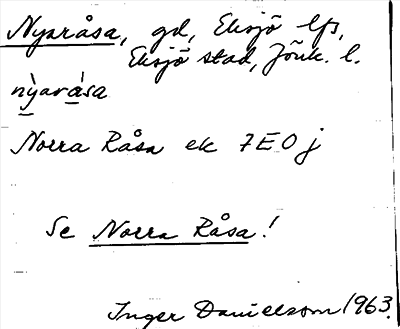 Nyaråsa, gd, Eksjö lfs,
Eksjö stad, Jönk. l.
nỳaràsa
Norra Råsa ek 7E0j
Se Norra Råsa!
Inger Danielsson 1963.